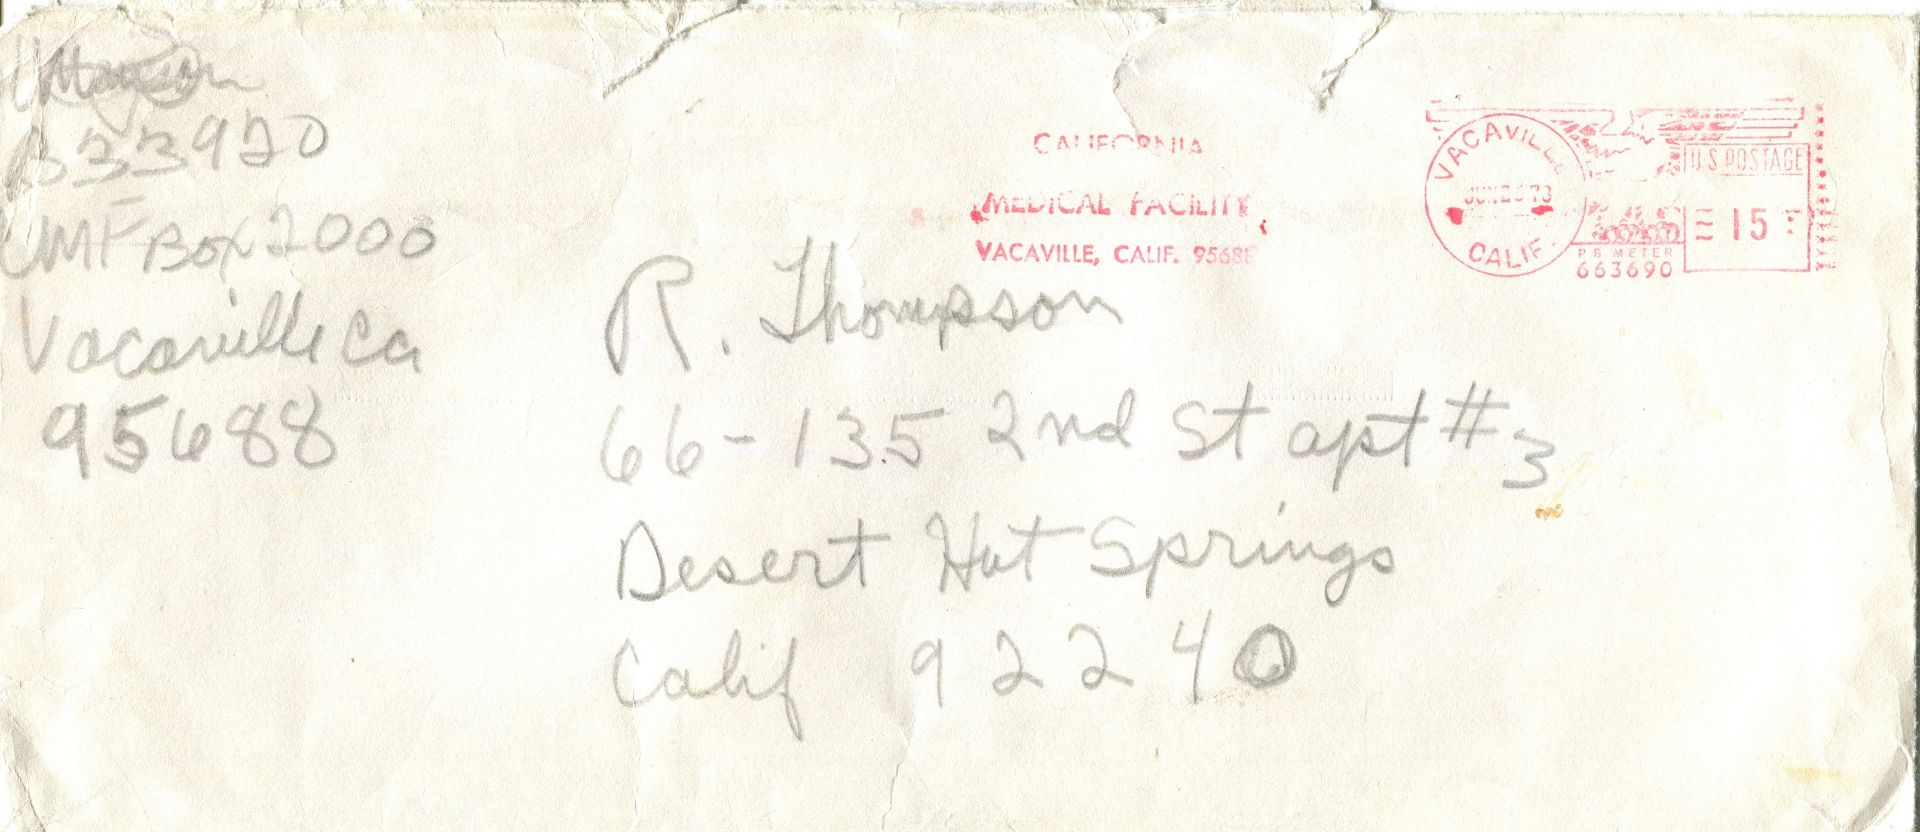 Manson
B33920
CMF Box 2000
Vacaville Ca
95688
CALIFORNIA
MEDICAL FACILITY
VACAVILLE, CALIF. 95688
VACAVILLE
CALIF.
U.S. POSTAGE
15
P B METER
663690
R. Thompson
66-135 2nd St apt #3
Desert Hot Springs
Calif 92240